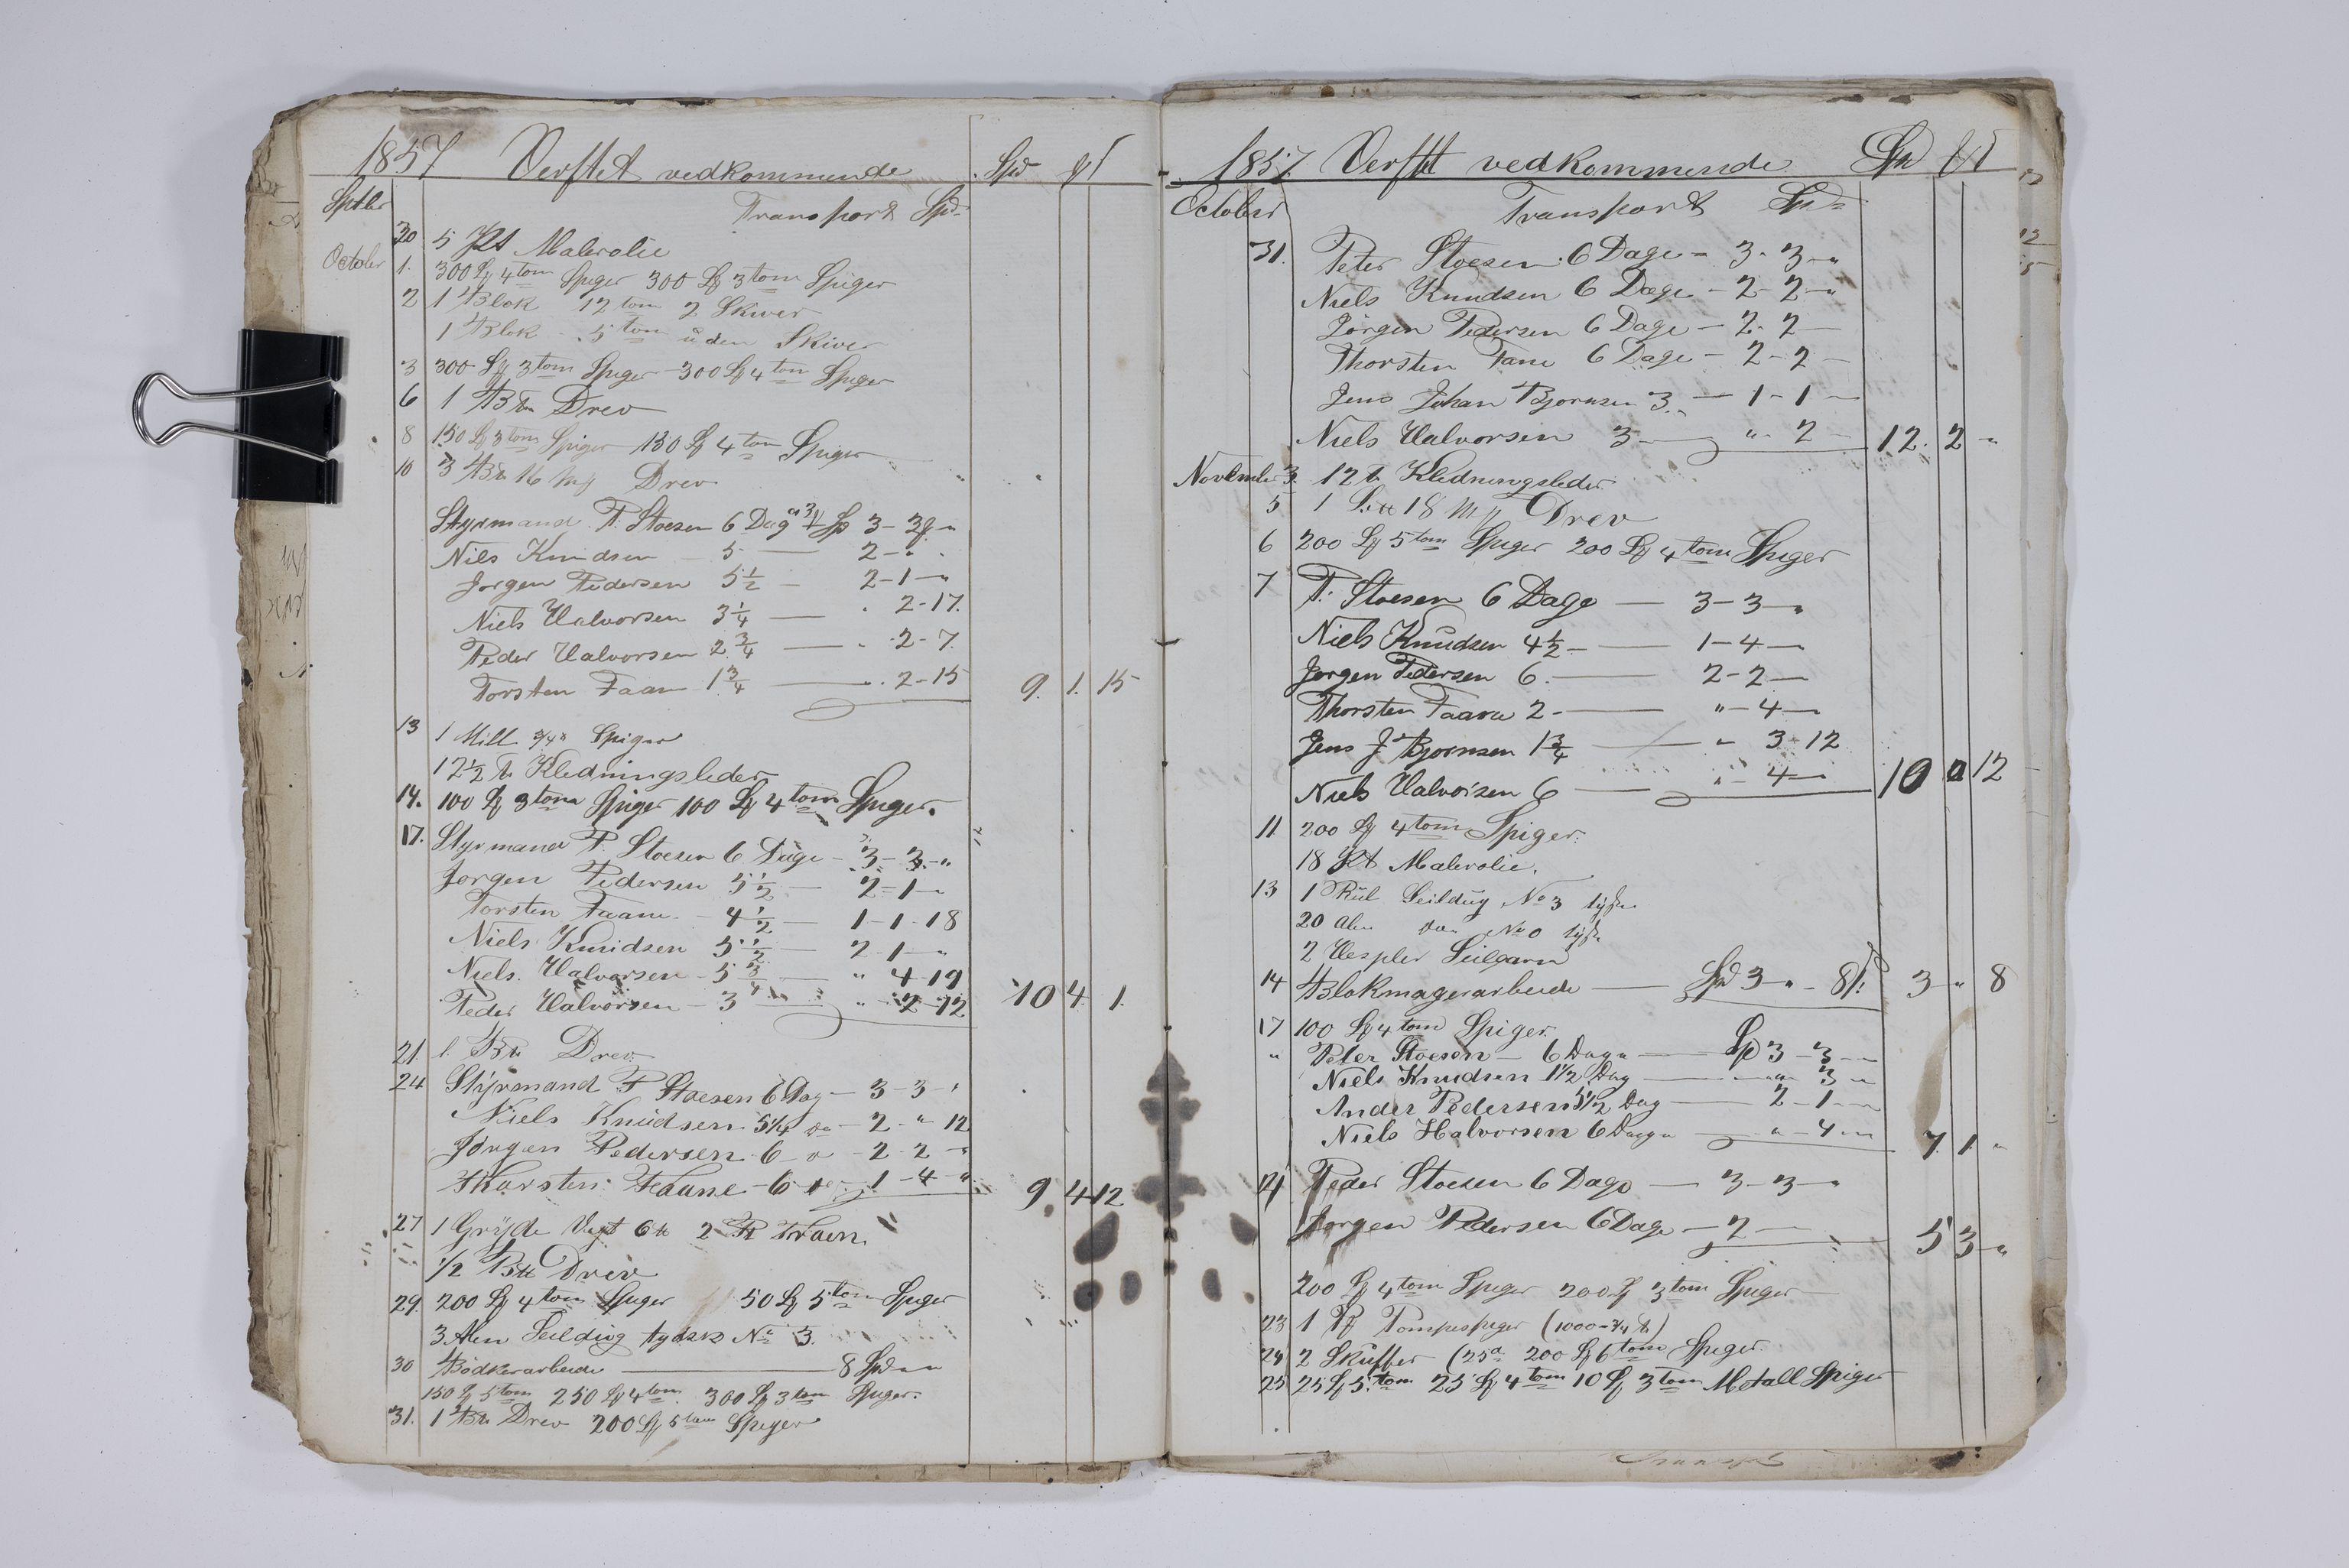 1857 Verftet vedkommende Spd
Septbr Transport Spd
30 5 Pt Malerolie
October 1. 300 St 4 tom Spiger 300 St 3 tom Spiger
2 1 Blok 12 tom 2 Skiver
1 Blok 5 tom uden Skiver
3 300 St 3 tom Spiger 300 St 4 tom Spiger
6 1 B℔ Drev
8 150 St 3 tom Spiger 150 St 4 tom Spiger
10 3 B℔ 16 Drev
Styrmand P. Stoesen 6 Dag Sp 3-3-"
Niels Knudsen 5 — 2-"-"
Jorgen Pedersen 5 1/2 — 2-1-"
Niels Halvorsen 3 1/4 — " 2-17.
Peder Halvorsen 2 3/4 — " 2-7.
Torsten Faan 1 3/4 — " 2-15 9. 1. 15
13 1 Mill 3/4" Spiger
12 1/2 ℔ Kledningsleder
14. 100 St 3 tom Spiger 100 St 4 tom Spiger.
17. Styrmand P. Stoesen 6 Dage - 3-3-"
Jorgen Pedersen 5 1/2 — 2-1-"
Torsten Faane - 4 1/2 — 1-1-18
Niels Knudsen 5 1/2 — 2-1-"
Niels Halvorsen - 5 3/4 — " 4-19
Peder Halvorsen - 3 — " 2-12 10 4 1.
21. 1. B℔ Drev
24 Styrmand P Stoesen 6 Dag - 3-3-"
Niels Knudsen 5 1/4 do - 2-"-12
Jørgen Pedersen 6 - 2-2-"
Thorsten Faane - 6 1-4-" 9. 4 12
27 1 Gryde Vegt 6 ℔ 2 Pt Traen.
1/2 B℔ Drev
29. 200 St 4 tom Spiger 50 St 5 tom Spiger
3 Alen Seildug tydsk No 3.
30 Bødkerarbeide — 8 Spd " "
150 St 5 tom 250 St 4 tom. 300 St 3 tom Spiger.
31. 1 B℔ Drev 200 St 5 tom Spiger
1857. Verftet vedkommende Spd
October Transport Spd
31. Peter Stoesen 6 Dage - 3-3-"
Niels Knudsen 6 Dage - 2-2-"
Jörgen Pedersen 6 Dage - 2-2 —
Thorsten Fane 6 Dage - 2-2 —
Jens Johan Bjornsen 3 " — 1-1 —
Niels Halvorsen 3 — "-2 — 12. 2 "
November 3. 12 ℔ Kledningsleder
5 18 Drev
6 200 St 5 tom Spiger 200 St 4 tom Spiger
7 P. Stoesen 6 Dage — 3-3-"
Niels Knudsen 4 1/2 — 1-4 —
Jorgen Pedersen 6. — 2-2 —
Thorsten Faana 2 — "-4 —
Jens J Bjornsen 1 3/4 — " 3-12
Niels Halvorsen 6 — "-4 — 10 0 12
11 200 St 4 tom Spiger.
18 Pt Malerolie.
13 1 Rul Seildug No 3 tydsk
20 Alen do No 0 tydsk
2 Hespler Seilgarn
14 Blokmagerarbeide — Spd 3-"-8 3 " 8
17 100 St 4 tom Spiger
" Peter Stoesen — 6 Dage — Sp 3-3-
Niels Knudsen 1 1/2 Dag — " 3 "
Ander Pedersen 5 1/2 Dag — 2-1-
Niels Halvorsen 6 Dage — "-4- 7. 1. "
21 Peder Stoesen 6 Dage — 3-3-"
Jorgen Pedersen 6 Dage - 2 — 5 3 "
200 St 4 tom Spiger 200 St 3 tom Spiger
23 1 Pompespiger (1000 - 3/4 ℔)
24 2 Skuffer (25 200 St 6 tom Spiger.
25 25 St 5. tom 25 St 4 tom 10 St 3 tom Metall Spiger